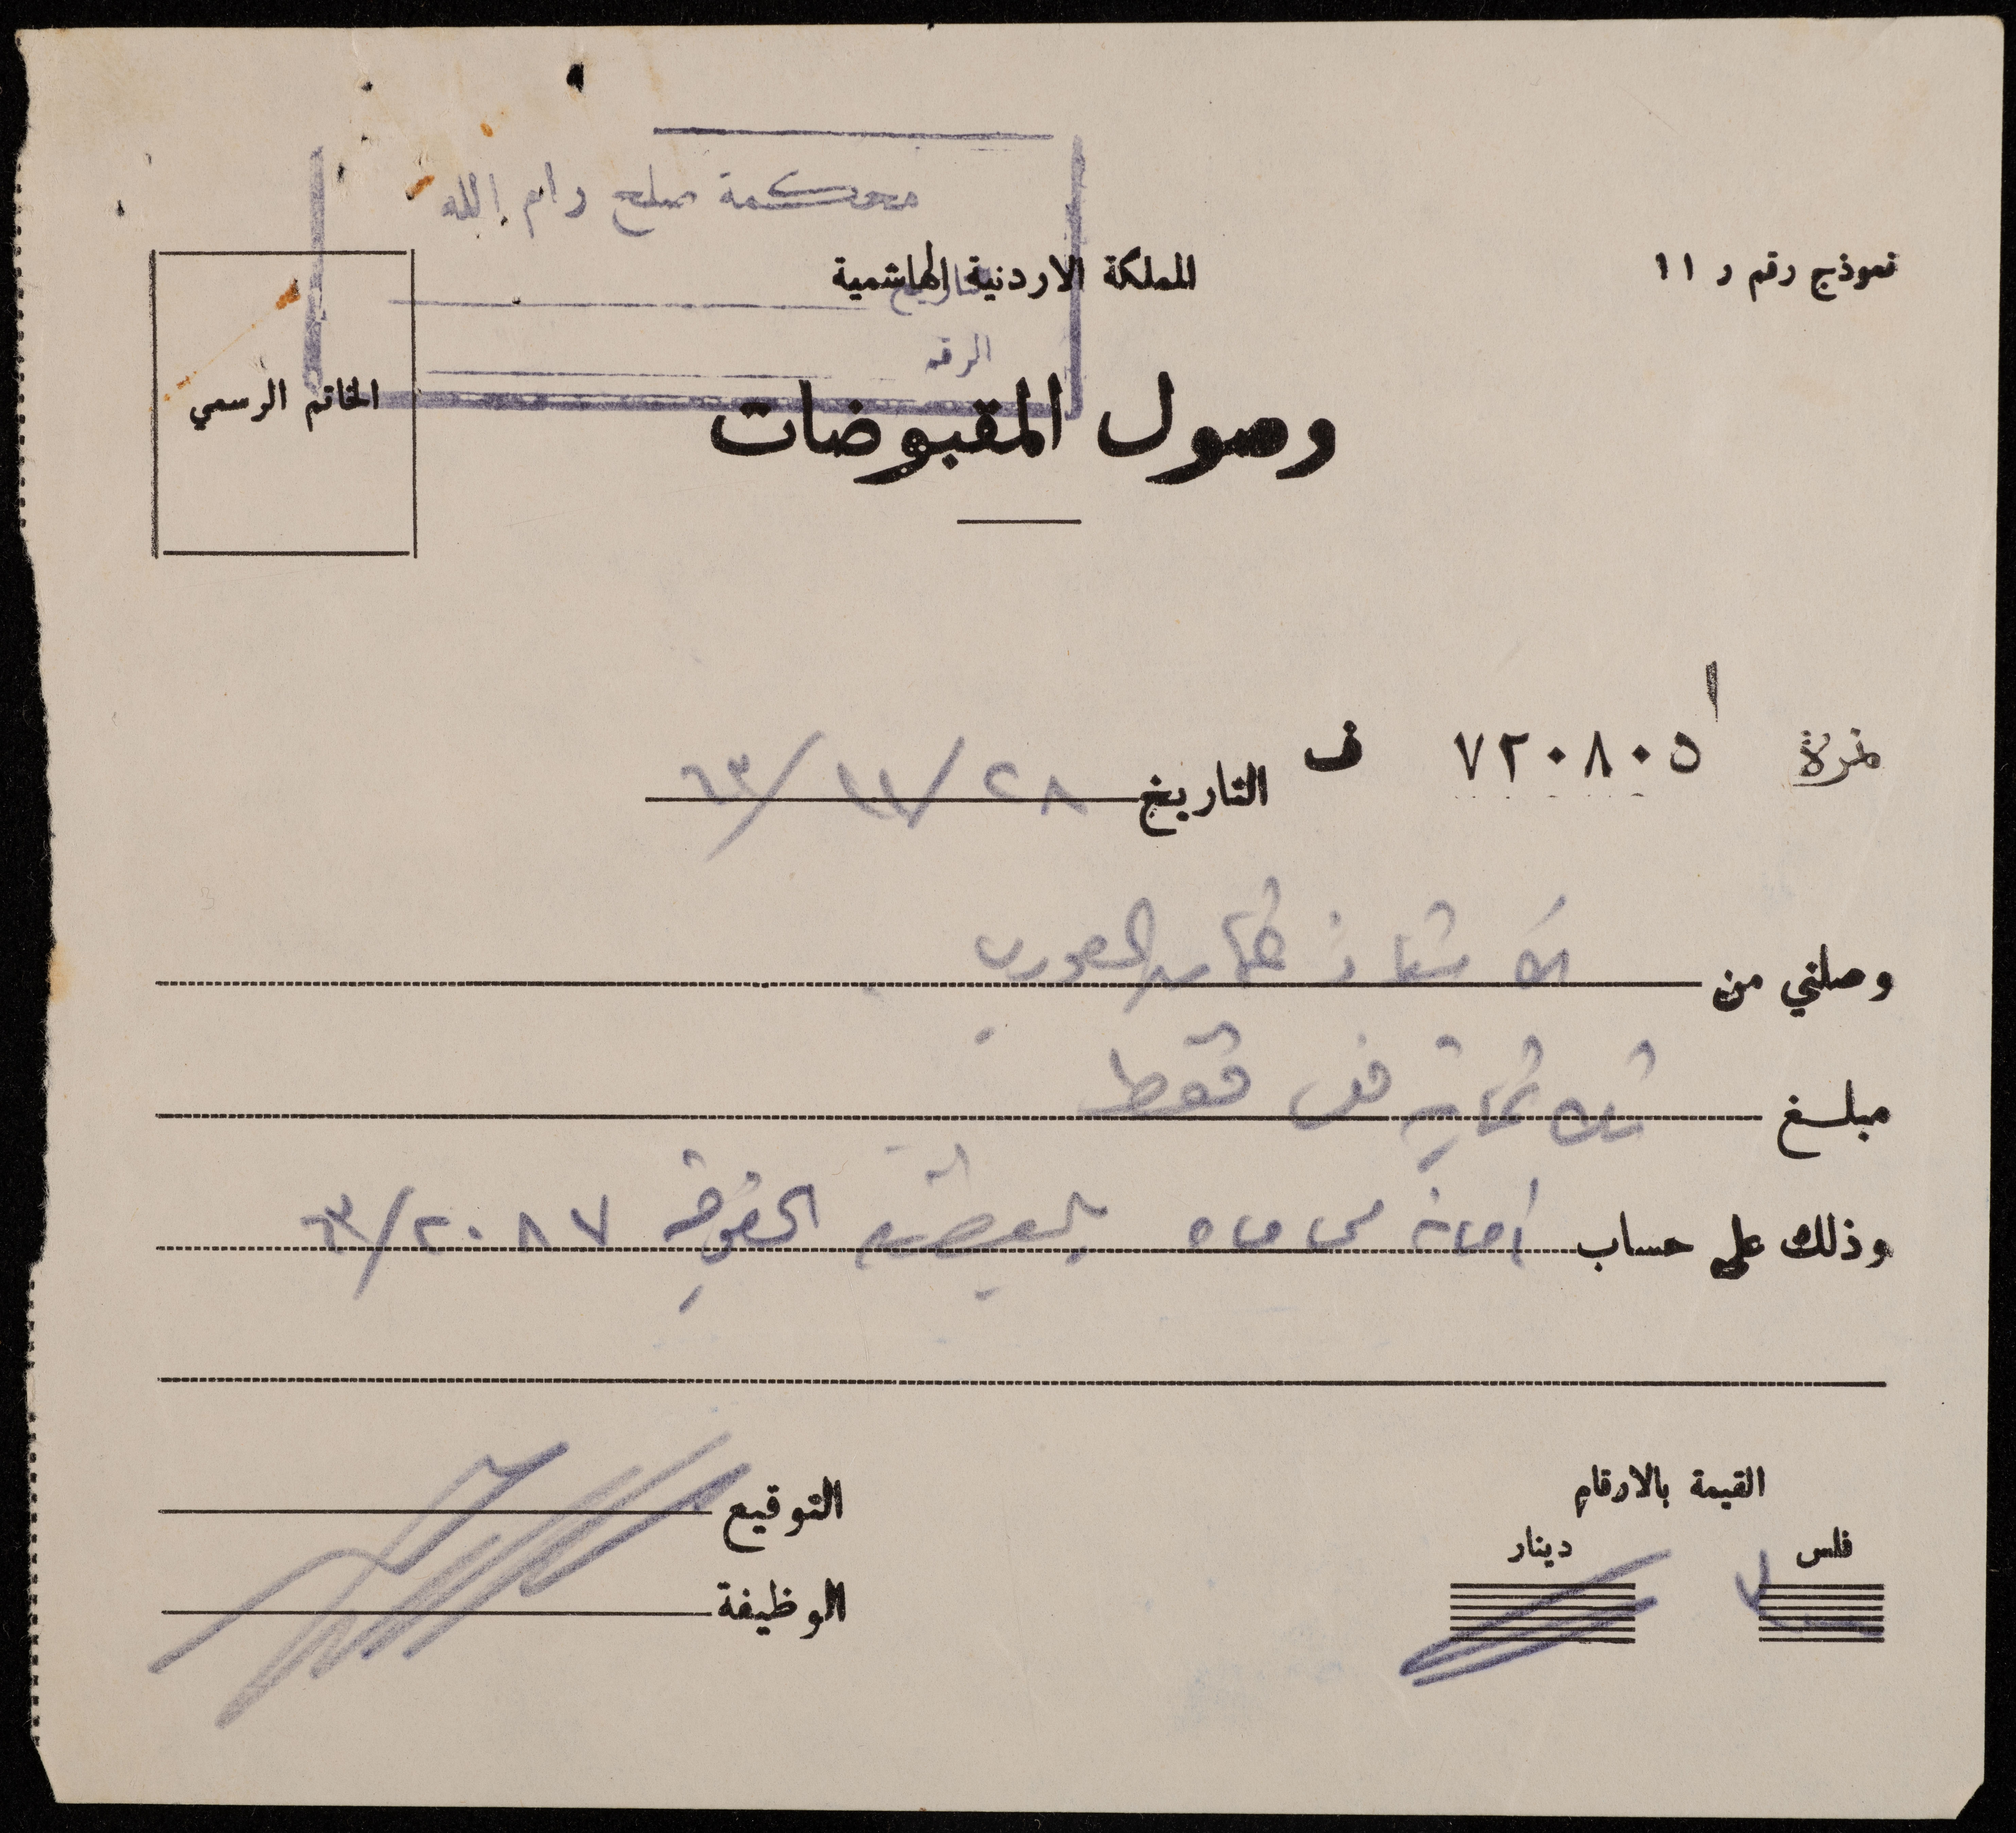 محكمة صلح رام الله
نموذج رقم ر ١١
المملكة الاردنية الهاشمية
التاريخ
الرقم
الخاتم الرسمي
وصول المقبوضات
نمرة ٧٢٠٨٠٥ ف
التاريخ ٢٨/١١/٦٣
وصلني من الاستاذ
مبلغ ثلاثماية فلس فقط
وذلك على حساب أمانة القضية الحقوقية ٢٠٨٧/٦٣
القيمة بالارقام
فلس دينار
التوقيع
الوظيفة